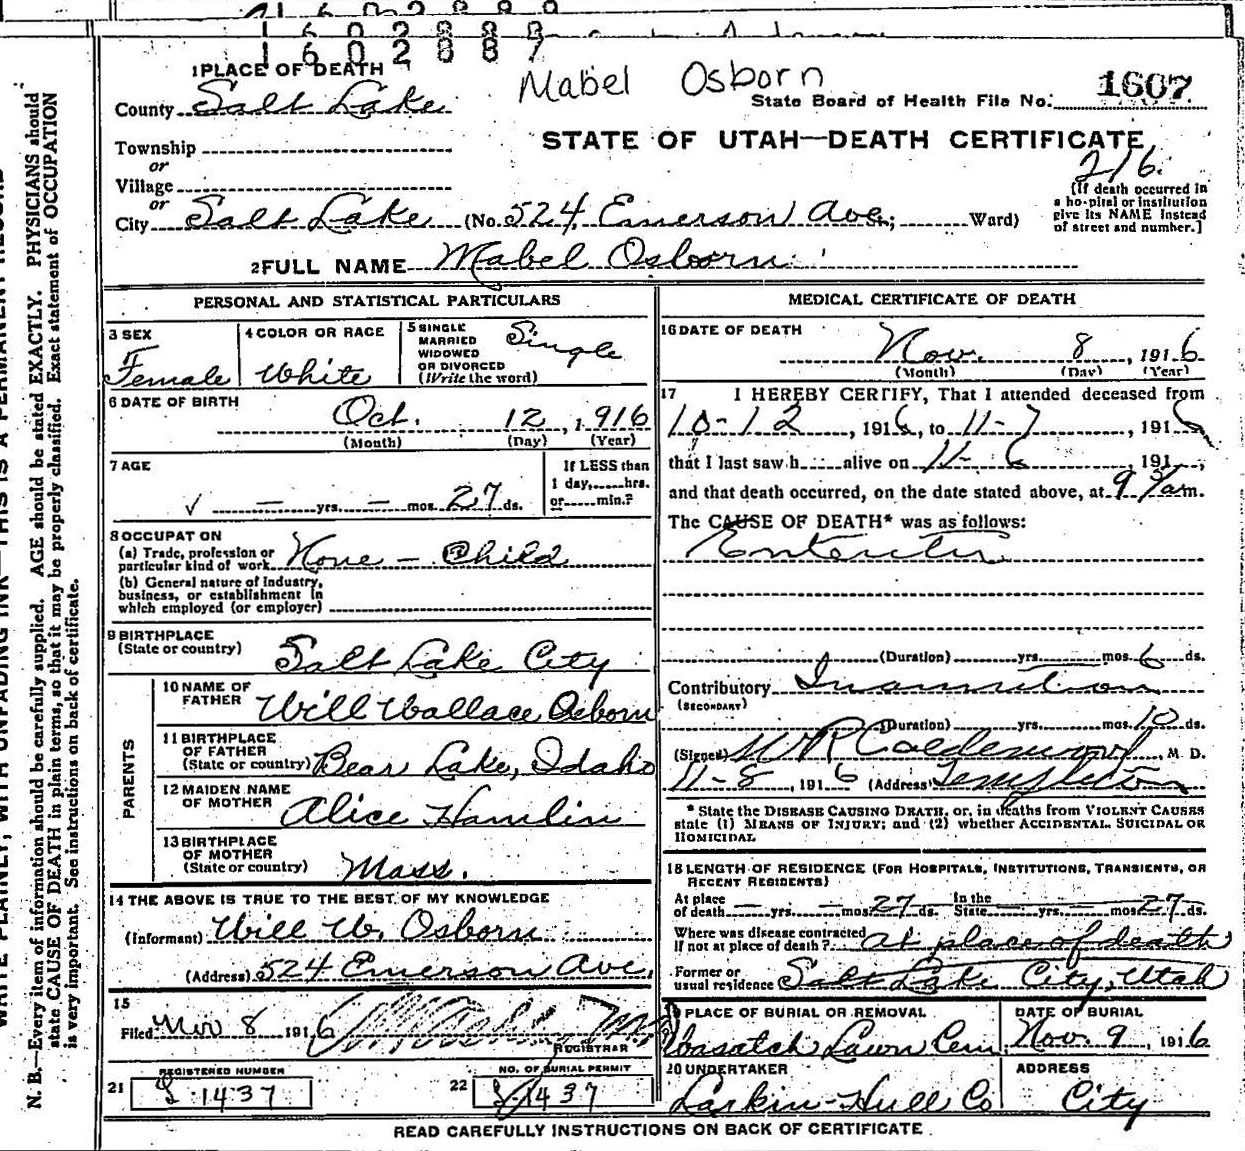 1602887
Mabel Osborn
1 PLACE OF DEATH
County Salt Lake
State Board of Health File No. 1607
Township
or
Village
or
STATE OF UTAH—DEATH CERTIFICATE
216
[If death occurred in
a hospital or institution
give its NAME instead
of street and number.]
City Salt Lake (No. 524 Emerson Ave.; Ward)
2 FULL NAME Mabel Osborn
PERSONAL AND STATISTICAL PARTICULARS
3 SEX
Female
4 COLOR OR RACE
White
5 SINGLE
MARRIED
WIDOWED
OR DIVORCED
(Write the word)
Single
6 DATE OF BIRTH
Oct. 12, 1916
(Month) (Day) (Year)
7 AGE
If LESS than
1 day, hrs.
or min.?
✓ — yrs. — mos. 27 ds.
8 OCCUPATON
(a) Trade, profession or
particular kind of work None - Child
(b) General nature of industry,
business, or establishment in
which employed (or employer)
9 BIRTHPLACE
(State or country) Salt Lake City
PARENTS
10 NAME OF
FATHER Will Wallace Osborn
11 BIRTHPLACE
OF FATHER
(State or country) Bear Lake, Idaho
12 MAIDEN NAME
OF MOTHER Alice Hamlin
13 BIRTHPLACE
OF MOTHER
(State or country) Mass.
14 THE ABOVE IS TRUE TO THE BEST OF MY KNOWLEDGE
(Informant) Will W. Osborn
(Address) 524 Emerson Ave.
15
Filed Nov 8 1916
REGISTRAR
21 REGISTERED NUMBER
1437
22 NO. OF BURIAL PERMIT
1437
MEDICAL CERTIFICATE OF DEATH
16 DATE OF DEATH
Nov. 8, 1916
(Month) (Day) (Year)
17 I HEREBY CERTIFY, That I attended deceased from
10-12, 1916, to 11-7, 1916
that I last saw h alive on 11-6, 191 ,
and that death occurred, on the date stated above, at 9 am.
The CAUSE OF DEATH* was as follows:
Enteritis
(Duration) yrs. — mos. 6 ds.
Contributory Inanition
(SECONDARY)
(Duration) yrs. mos. 10 ds.
(Signed) W R Calderwood, M. D.
11-8, 1916 (Address) Templeton
* State the DISEASE CAUSING DEATH, or, in deaths from VIOLENT CAUSES
state (1) MEANS OF INJURY; and (2) whether ACCIDENTAL, SUICIDAL OR
HOMICIDAL
18 LENGTH OF RESIDENCE (FOR HOSPITALS, INSTITUTIONS, TRANSIENTS, OR
RECENT RESIDENTS)
At place
of death — yrs. — mos. 27 ds. In the
State — yrs. — mos. 27 ds.
Where was disease contracted
if not at place of death? at place of death
Former or
usual residence Salt Lake City, Utah
19 PLACE OF BURIAL OR REMOVAL
Wasatch Lawn Cem
DATE OF BURIAL
Nov. 9, 1916
20 UNDERTAKER
Larkin-Hull Co
ADDRESS
City
READ CAREFULLY INSTRUCTIONS ON BACK OF CERTIFICATE
N. B.—Every item of information should be carefully supplied. AGE should be stated EXACTLY. PHYSICIANS should
state CAUSE OF DEATH in plain terms, so that it may be properly classified. Exact statement of OCCUPATION
is very important. See instructions on back of certificate.